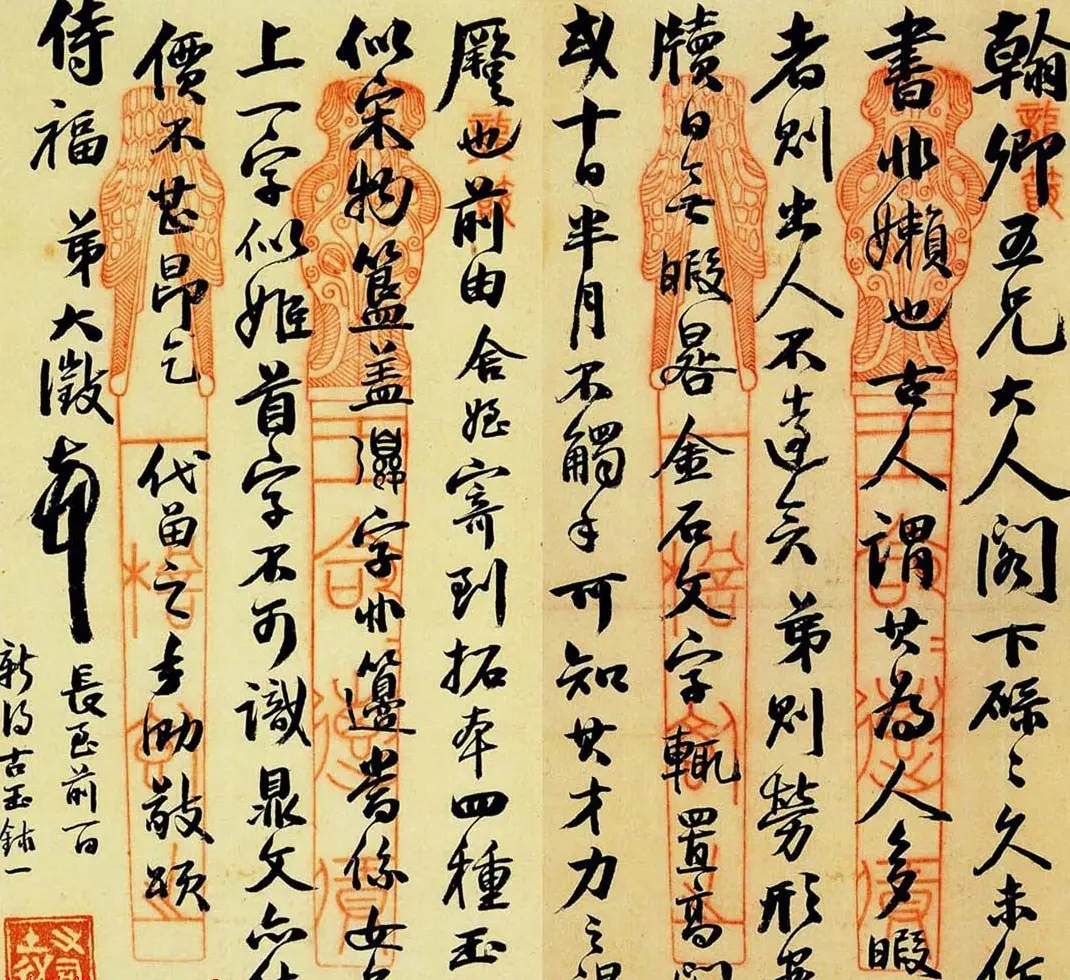 翰卿五兄大人閣下磔〻久未作
書非嬾也古人謂其為人多暇
者則出人不遠矣弟則勞形案
牘日無暇晷金石文字輒置高閣
或十日半月不觸手可知其才力之
也前由舍姪寄到拓本四種玉
似宋物簠蓋字非邊當係女
上一字似姬首字不可識鼎文亦
價不甚昂乞
代留之手泐敬頌
侍福 弟大澂
長至前一日
新得古玉鉢一